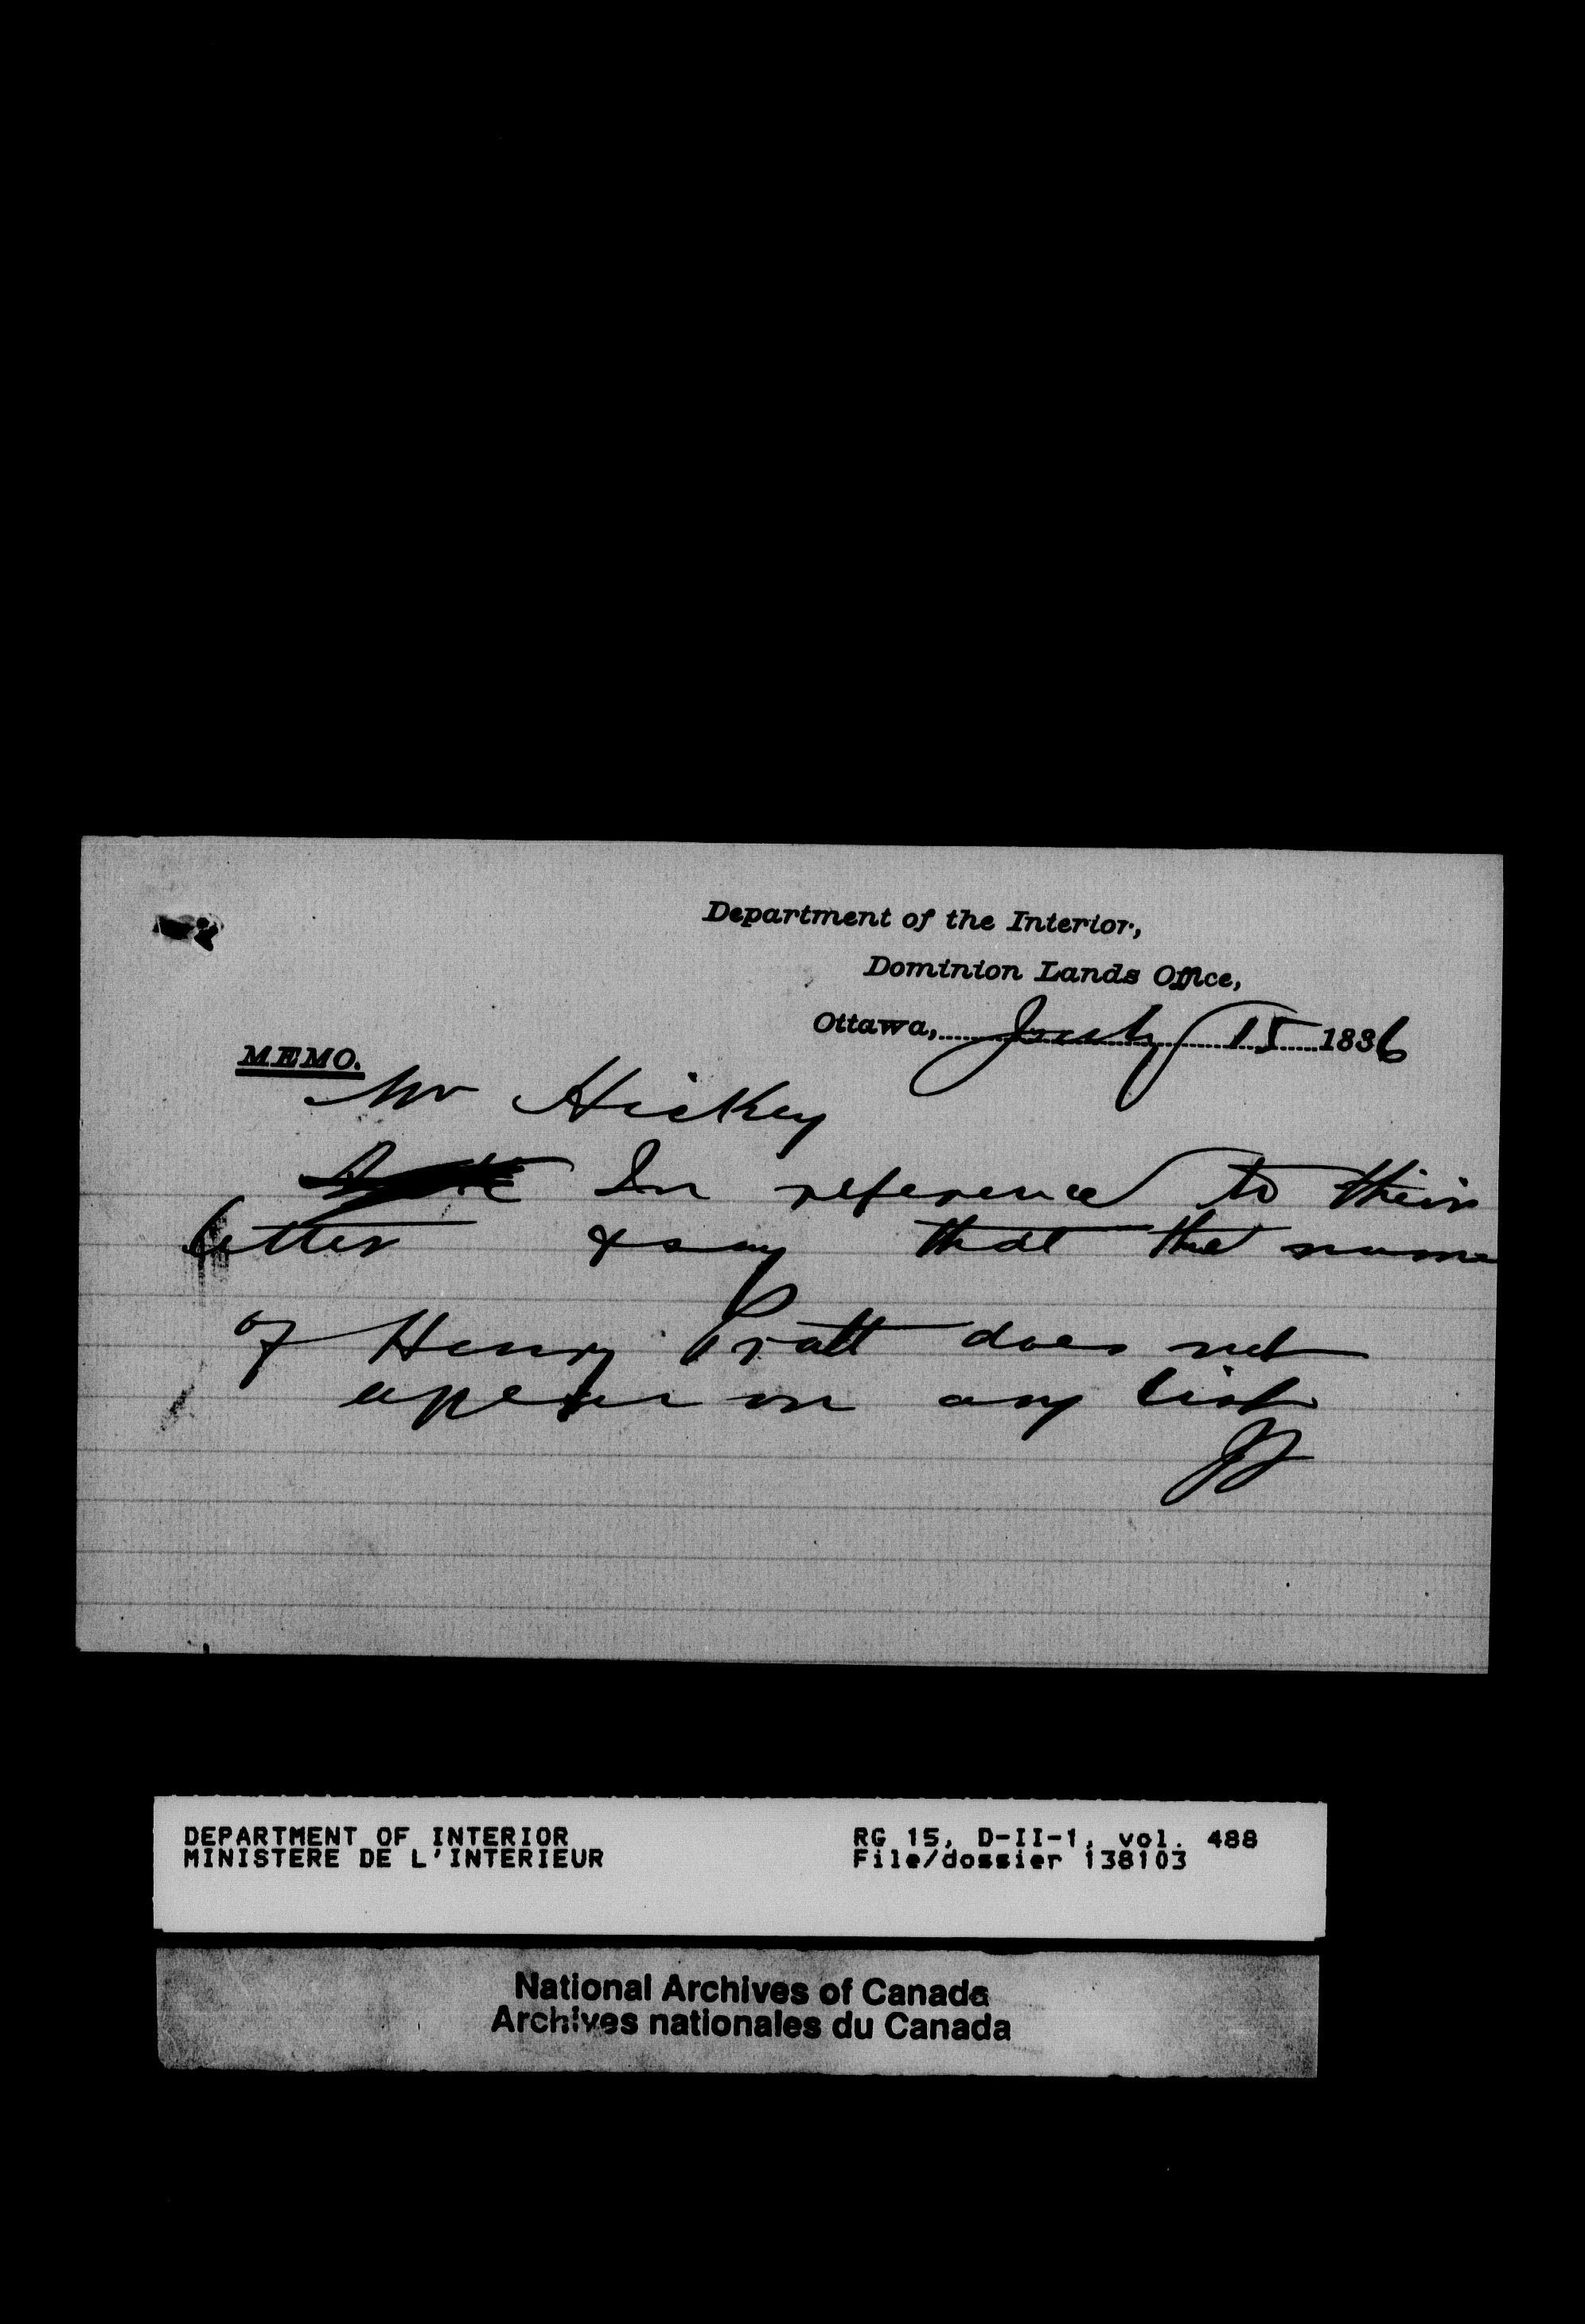 Department of the Interior,
Dominion Lands Office,
Ottawa, July 15 1886
MEMO.
Mr Hickey
In reference to their
letter & say that the name
of Henry Pratt does not
apear on any list
DEPARTMENT OF INTERIOR
MINISTERE DE L'INTERIEUR
RG 15, D-II-1, vol. 488
File/dossier 138103
National Archives of Canada
Archives nationales du Canada